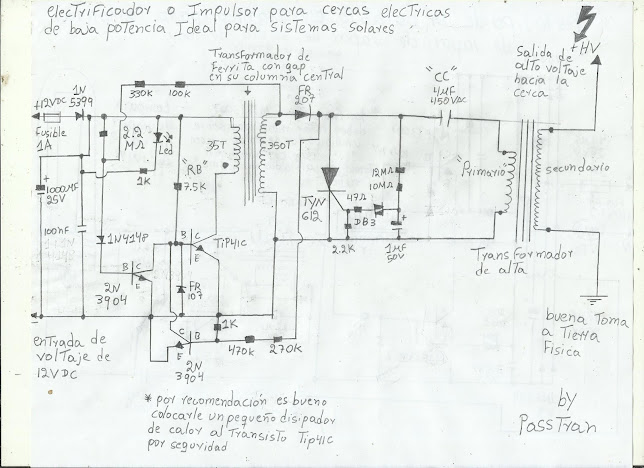 electrificador o Impulsor para cercas electricas
de baja potencia Ideal para sistemas solares
Transformador de
Ferrita con gap
en su columna central
salida de
alto voltaje
hacia la
cerca
+HV
+12VDC
1N
5399
Fusible
1A
330K
100K
FR
207
"CC"
4µF
450VAC
2.2
MΩ
Led
1K
35T
350T
"RB"
7.5K
1000µF
25V
100nF
1N4148
B
C
E
2N
3904
B
C
E
TiP41C
FR
107
TYN
612
47Ω
DB3
12MΩ
10MΩ
2.2K
1µF
50V
"Primario"
secundario
Transformador
de alta
1K
470K
270K
C
B
E
2N
3904
entrada de
voltaje de
12VDC
buena Toma
a Tierra
Fisica
* por recomendación es bueno
colocarle un pequeño disipador
de calor al Transisto Tip41C
por seguridad
by
PassTran